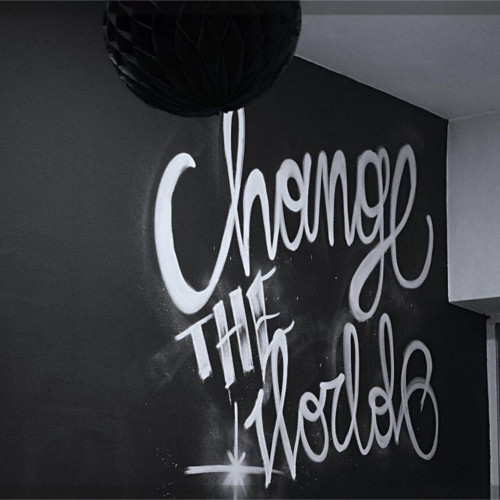 Change
THE
World